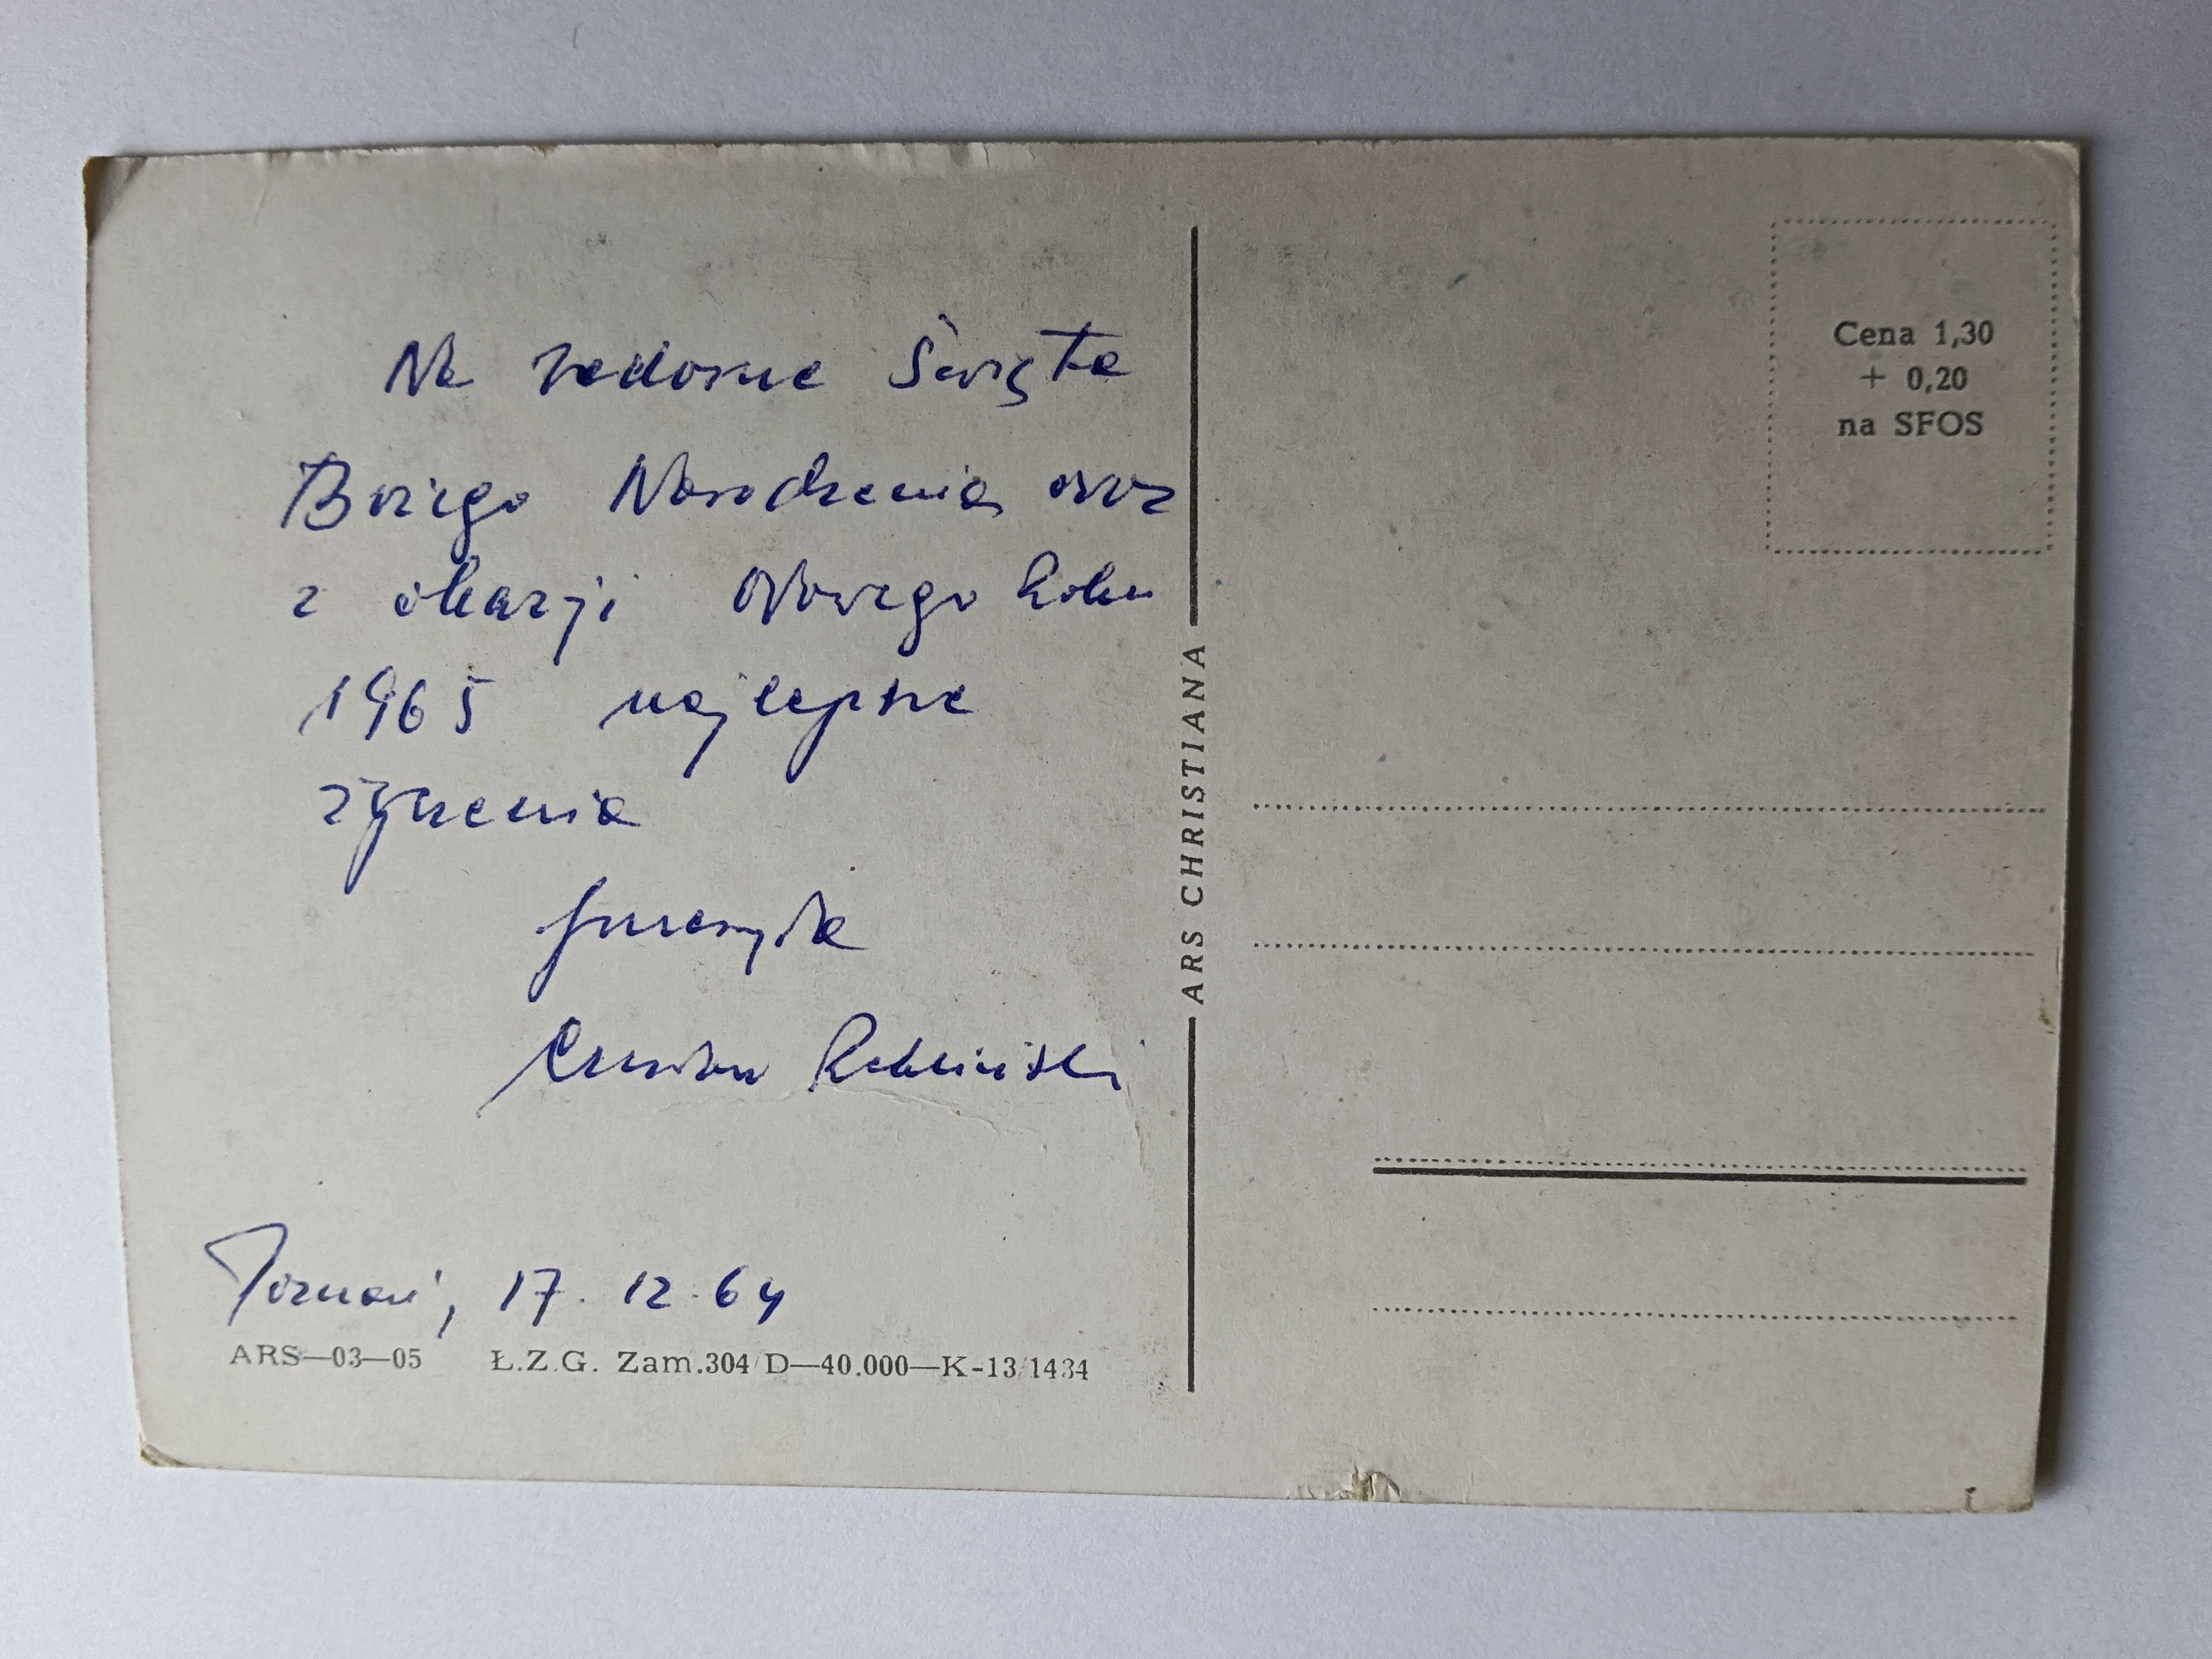 Na radosne Święta
Bożego Narodzenia oraz
z okazji Nowego Roku
1965 najlepsze
życzenia
przesyła
Poznań, 17.12.64
ARS—03—05 Ł.Z.G. Zam.304/D—40.000—K-13/1434
ARS CHRISTIANA
Cena 1,30
+ 0,20
na SFOS